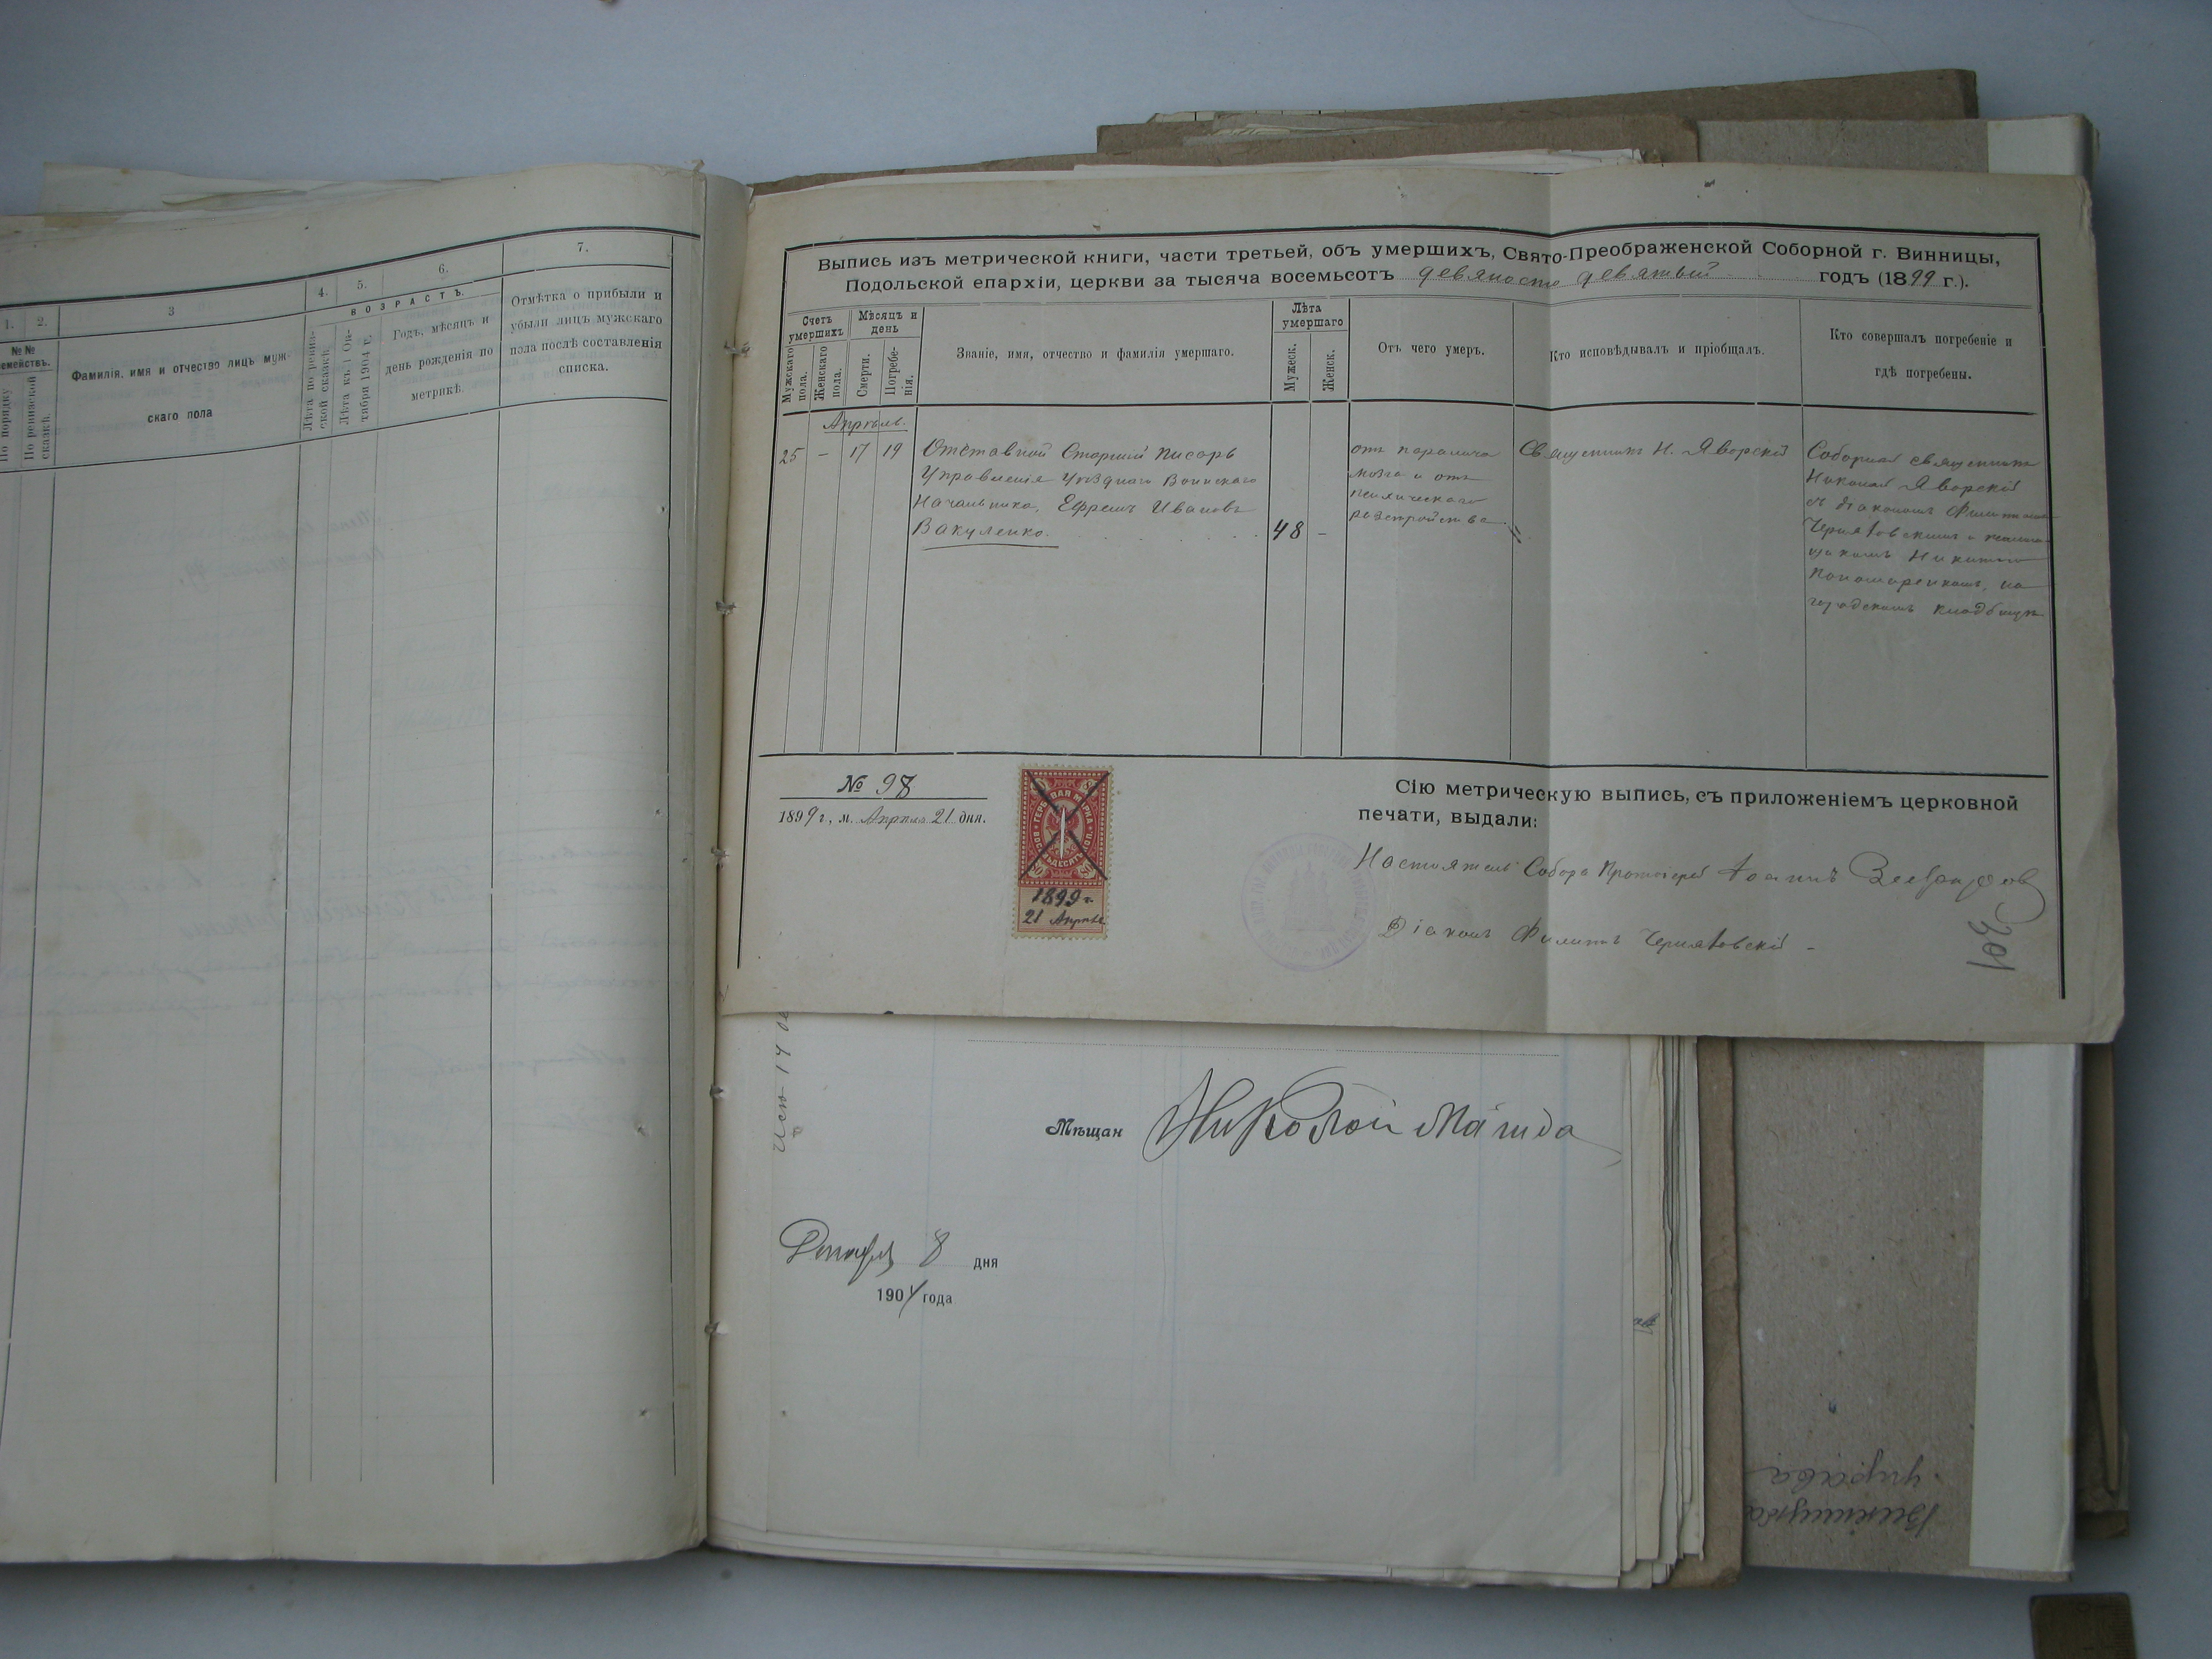 1.
2.
3
4.
5.
6.
7.
№ №
семействъ.
По порядку
По ревизской сказкѣ.
Фамилія, имя и отчество лицъ муж-
скаго пола
ВОЗРАСТЪ.
Лѣта по ревиз-
ской сказкѣ.
Лѣта къ 1 Ок-
тября 1904 г.
Годъ, мѣсяцъ и
день рожденія по
метрикѣ.
Отмѣтка о прибыли и
убыли лицъ мужскаго
пола послѣ составленія
списка.
Выпись изъ метрической книги, части третьей, объ умершихъ, Свято-Преображенской Соборной г. Винницы,
Подольской епархіи, церкви за тысяча восемьсотъ девяносто девятый годъ (1899 г.).
Счетъ
умершихъ
Мужскаго
пола.
Женскаго
пола.
Мѣсяцъ и
день
Смерти.
Погребе-
нія.
Званіе, имя, отчество и фамилія умершаго.
Лѣта
умершаго
Мужеск.
Женск.
Отъ чего умеръ.
Кто исповѣдывалъ и пріобщалъ.
Кто совершалъ погребеніе и
гдѣ погребены.
Апрѣль.
25 – 17 19
Отставной Старшій писарь
Управленія Уѣзднаго Воинскаго
Начальника, Ефремъ Ивановъ
Вакуленко.
48 –
отъ паралича
мозга и отъ
психическаго
разстройства
Священникъ Н. Яворскій
Соборный священникъ
Николай Яворскій
съ діакономъ Филиппомъ
Чернятовскимъ и псалом-
щикомъ Никитою
Пономаренкомъ, на
городскомъ кладбищѣ
№ 98
1899 г., м. Апрѣля 21 дня.
ГЕРБОВАЯ МАРКА
ВОСЕМЬДЕСЯТЪ КОП.
80
1899 г.
21 Апрѣля
Сію метрическую выпись, съ приложеніемъ церковной
печати, выдали:
Настоятель Собора Протоіерей Іоаннъ
Діаконъ Филиппъ Чернятовскій
Мѣщан Николай
Декабря 8 дня
1904 года
Вінницька
управа